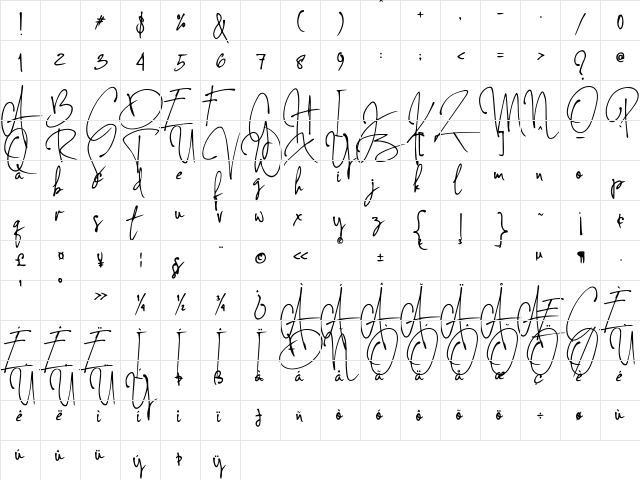 ! # $ % & ( ) + , - . / 0
1 2 3 4 5 6 7 8 9 : ; < = > ? @
A B C D E F G H I J K L M N O P
Q R S T U V W X Y Z [ ] ^ _
a b c d e f g h i j k l m n o p
q r s t u v w x y z { | } ~ ¡ ¢
£ ¤ ¥ ¦ § ¨ © « ± ³ µ ¶ ·
¸ º » ¼ ½ ¾ ¿ À Á Â Ã Ä Å Æ Ç È
É Ê Ë Ì Í Î Ï Ð Ñ Ò Ó Ô Õ Ö Ø Ù
Ú Û Ü Ý Þ ß à á â ã ä å æ ç è é
ê ë ì í î ï ð ñ ò ó ô õ ö ÷ ø ù
ú û ü ý þ ÿ